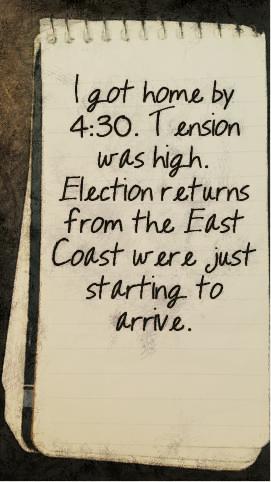 I got home by
4:30. Tension
was high.
Election returns
from the East
Coast were just
starting to
arrive.